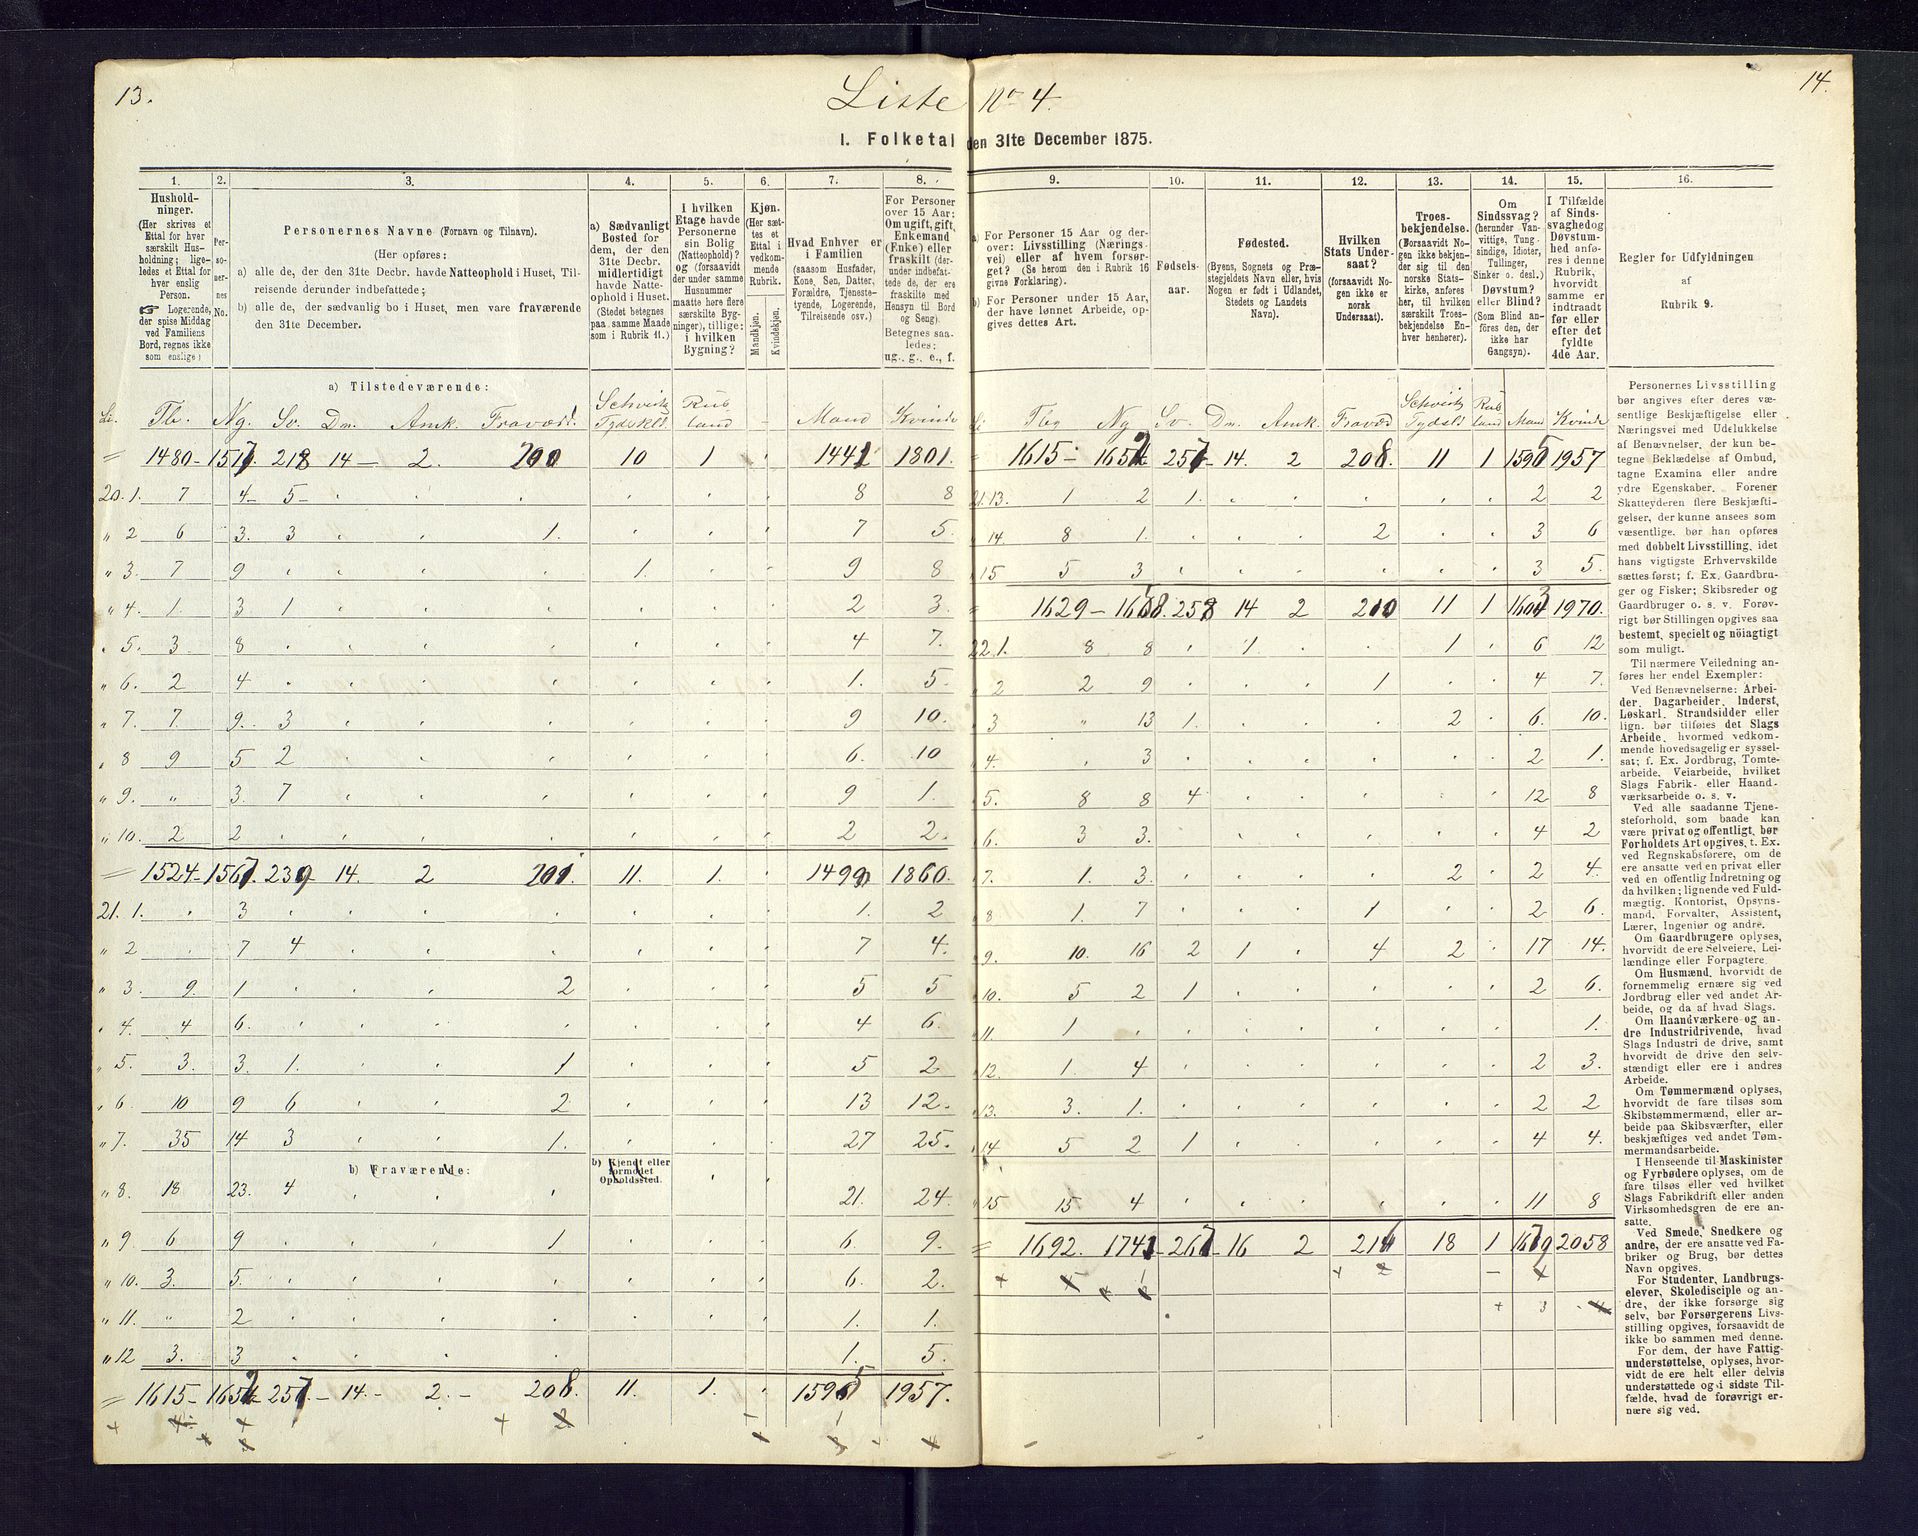 13.
Liste No 4.
14.
1. Folketal den 31te December 1875.
1. 2. 3. 4. 5. 6. 7. 8.
Hushold-
ninger.
(Her skrives et
Ettal for hver
særskilt Hus-
holdning; lige-
ledes et Ettal for
hver enslig
Person.
☞ Logerende,
der spise Middag
ved Familiens
Bord, regnes ikke
som enslige)
Per-
so-
ner-
nes
No.
Personernes Navne (Fornavn og Tilnavn).
(Her opføres:
a) alle de, der den 31te Decbr. havde Natteophold i Huset, Til-
reisende derunder indbefattede;
b) alle de, der sædvanlig bo i Huset, men vare fraværende
den 31te December.
a) Sædvanligt
Bosted for
dem, der den
31te Decbr.
midlertidigt
havde Natte-
ophold i Huset.
(Stedet betegnes
paa samme Maade
som i Rubrik 11.)
I hvilken
Etage havde
Personerne
sin Bolig
(Natteophold)?
og (forsaavidt
der under samme
Husnummer
maatte høre flere
særskilte Byg-
ninger), tillige:
i hvilken
Bygning?
Kjøn.
(Her sæt-
tes et
Ettal i
vedkom-
mende
Rubrik.
Mandkjøn.
Kvindekjøn.
Hvad Enhver er
i Familien
(saasom Husfader,
Kone, Søn, Datter,
Forældre, Tjeneste-
tyende, Logerende,
Tilreisende osv.)
For Personer
over 15 Aar:
Om ugift, gift,
Enkemand
(Enke) eller
fraskilt (der-
under indbefat-
tede de, der ere
fraskilte med
Hensyn til Bord
og Seng)
Betegnes saa-
ledes:
ug., g., e., f.
a) Tilstedeværende:
Li. Tlr. Ng. Sv. Dm. Amk. Fravær. Schveitz Tydskld. Rusland Mand Kvinde
= 1480- 1517. 218 14- 2. 200 10 1 1441 1801.
20.1. 7 4- 5- 8 8
" 2 6 3. 3 1. 7 5.
" 3. 7 9 1. 9 8
" 4. 1. 3 1 2 3.
" 5. 3 8 4 7.
" 6. 2 4 1. 5.
" 7. 7. 9. 3 9 10.
" 8 9 5 2 6. 10
" 9. " 3. 7 9 1.
" 10. 2 2 2 2.
= 1524- 1567. 239- 14. 2 201. 11. 1. 1499 1860.
21. 1. 3 1. 2
" 2 7 4 7 4.
" 3. 9. 1 2 5 5
" 4. 4 6. 4 6.
" 5. 3. 3. 1. 1 5 2.
" 6 10 9 6 2 13 12.
" 7. 35 14 3 1. 27 25.
b) Fraværende:
b) Kjendt eller
formodet
Opholdssted.
" 8. 18 23. 4 21. 24.
" 9 6 9 1 6. 9.
" 10. 3. 5. 6. 2.
" 11. " 2 1. 1.
" 12 3. 3 1. 5.
= 1615- 1652 257- 14.- 2.- 208. 11. 1. 1595 1957.
9. 10. 11. 12. 13. 14. 15. 16.
a) For Personer 15 Aar og der-
over: Livsstilling (Nærings-
vei) eller af hvem forsør-
get? (Se herom den i Rubrik 16
givne Forklaring).
b) For Personer under 15 Aar,
der have lønnet Arbeide, op-
gives dettes Art.
Fødsels-
aar.
Fødested.
(Byens, Sognets og Præ-
stegjeldets Navn eller, hvis
Nogen er født i Udlandet,
Stedets og Landets
Navn).
Hvilken
Stats Under-
saat?
(forsaavidt No-
gen ikke er
norsk
Undersaat).
Troes-
bekjendelse.
(Forsaavidt No-
gen ikke bekjen-
der sig til den
norske Stats-
kirke, anføres
her, til hvilken
særskilt Troes-
bekjendelse En-
hver henhører).
Om
Sindssvag?
(herunder Van-
vittige, Tung-
sindige, Idioter,
Tullinger,
Sinker o. desl.)
Døvstum?
eller Blind?
(Som Blind an-
føres den, der
ikke har
Gangsyn).
I Tilfælde
af Sinds-
svaghed og
Døvstum-
hed anfø-
res i denne
Rubrik,
hvorvidt
samme er
indtraadt
før eller
efter det
fyldte
4de Aar.
Regler for Udfyldningen
af
Rubrik 9.
Li Tlrg Ng Sv. Dm. Amk. Fravæd Schveitz Tydsld Rusland Mand Kvinde
1615- 1652 257- 14. 2 208. 11 1 1595 1957
21.13. 1 2 1. 2 2
" 14. 8 1. 2 3 6
" 15 5 3 3 5.
= 1629- 1658. 258 14 2 210 11 1 1603 1970.
22 1. 8 8 1. 1 6 12
" 2 2 9 1 4 7.
" 3 " 13 1. 2 6. 10.
" 4. 3 2 1.
" 5. 8 8 4 12 8
" 6. 3 3. 4 2
" 7. 1. 3. 2 2 4.
" 8 1. 7 1 2 6.
" 9. 10. 16 2 1 4 2 17 14.
" 10. 5 2 1 2 6.
" 11. 1 1.
" 12. 1. 4 2 3.
" 13. 3. 1. 2 2
" 14 5 2 1 4 4.
" 15 15 4 11 8
= 1692. 1741- 267- 16 2 216 18 1 1679 2058
Personernes Livsstilling
bør angives efter deres væ-
sentlige Beskjæftigelse eller
Næringsvei med Udelukkelse
af Benævnelser, der kun be-
tegne Beklædelse af Ombud,
tagne Examina eller andre
ydre Egenskaber. Forener
Skatteyderen flere Beskjæfti-
gelser, der kunne ansees som
væsentlige, bør han opføres
med dobbelt Livsstilling, idet
hans vigtigste Erhvervskilde
sættes først; f. Ex. Gaardbru-
ger og Fisker; Skibsreder og
Gaardbruger o. s. v. Forøv-
rigt bør Stillingen opgives saa
bestemt, specielt og nöiagtigt
som muligt.
Til nærmere Veiledning an-
føres her endel Exempler:
Ved Benævnelserne: Arbei-
der, Dagarbeider, Inderst,
Løskarl, Strandsidder eller
lign. bør tilføies det Slags
Arbeide, hvormed vedkom-
mende hovedsagelig er syssel-
sat; f. Ex. Jordbrug, Tomte-
arbeide, Veiarbeide, hvilket
Slags Fabrik- eller Haand-
værksarbeide o. s. v.
Ved alle saadanne Tjene-
steforhold, som baade kan
være privat og offentligt, bør
Forholdets Art opgives, t. Ex.
ved Regnskabsførere, om de
ere ansatte ved en privat eller
ved en offentlig Indretning og
da hvilken; lignende ved Fuld-
mægtig, Kontorist, Opsyns-
mand, Forvalter, Assistent,
Lærer, Ingeniør og andre.
Om Gaardbrugere oplyses,
hvorvidt de ere Selveiere, Lei-
lændinge eller Forpagtere.
Om Husmænd, hvorvidt de
fornemmelig ernære sig ved
Jordbrug eller ved andet Ar-
beide, og da af hvad Slags.
Om Haandværkere og an-
dre Industridrivende, hvad
Slags Industri de drive, samt
hvorvidt de drive den selv-
stændigt eller ere i andres
Arbeide.
Om Tømmermænd oplyses,
hvorvidt de fare tilsøs som
Skibstømmermænd, eller ar-
beide paa Skibsværfter, eller
beskjæftiges ved andet Tøm-
mermandsarbeide.
I Henseende til Maskinister
og Fyrbødere oplyses, om de
fare tilsøs eller ved hvilket
Slags Fabrikdrift eller anden
Virksomhedsgren de ere an-
satte.
Ved Smede, Snedkere og
andre, der ere ansatte ved Fa-
briker og Brug, bør dettes
Navn opgives.
For Studenter, Landbrugs-
elever, Skoledisciple og an-
dre, der ikke forsørge sig
selv, bør Forsørgerens Livs-
stilling opgives, forsaavidt de
ikke bo sammen med denne.
For dem, der have Fattig-
understøttelse, oplyses, hvor-
vidt de ere helt eller delvis
understøttede og i sidste Til-
fælde, hvad de forøvrigt er-
nære sig ved.